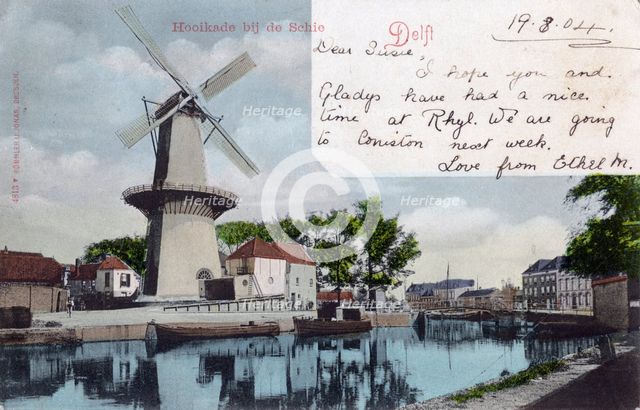 Hooikade bij de Schie
Delft
19.8.04.
Dear Susie
I hope you and.
Gladys have had a nice.
time at Rhyl. We are going
to Coniston next week.
Love from Ethel M.
4613 RÖMMLER & JONAS, DRESDEN.
Heritage
Heritage
Heritage
Heritage
Heritage